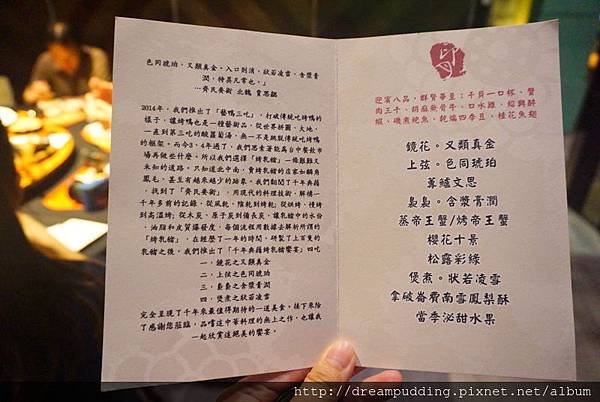 色同琥珀，又類真金。入口則消，狀若凌雪，含漿膏
潤，特異凡常也。」
…齊民要術 北魏 賈思勰
2014年，我們推出了「藝鴨三吃」，打破傳統吃烤鴨的
樣子，讓烤鴨也是一種藝術品，從世界拼圖、大地、
一直到第三吃的酸蘿蔔湯，無一不是跳脫傳統吃烤鴨
的框架。而今3、4年過了，我們思索著能為台中餐飲市
場再做些什麼。所以我們選擇「烤乳豬」一條艱難又
未知的道路。只知道北中南，賣烤乳豬的店家如麟角
鳳毛，甚至有越來越少的跡象。我們翻閱了千年典籍
，找到了「齊民要術」，用現代的料理技術，解構一
千年多前的紀錄。從風乾、陰乾到烤乾；從烘烤、慢烤
到高溫烤；從木炭、原子炭到備長炭，讓乳豬中的水份
、油脂和皮質爆發度，每個流程用數據去解析所謂的
「烤乳豬」，在經歷了一年的時間，研製了上百隻的
乳豬之後，我們推出了「千年典籍烤乳豬饗宴」四吃
一．鏡花之又類真金
二．上弦之色同琥珀
三．裊裊之含漿膏潤
四．煲煮之狀若凌雪
完全呈現了千年來最值得期待的一道美食。接下來除
了感謝您蒞臨，品嚐這中華料理的無上之作，也讓我
一起欣賞這絕美的饗宴。
迎賓八品，群賢畢至：干貝一口酥、蟹
肉玉干、胡麻
骨牛、口水雞、紹興醉
蝦、磯煮鮑魚、乾煸四季豆、桂花魚翅
鏡花。又類真金
上弦。色同琥珀
蓴鱸文思
裊裊。含漿膏潤
蒸帝王蟹/烤帝王蟹
櫻花十景
松露彩綠
煲煮。狀若凌雪
拿破崙費南雪鳳梨酥
當季泌甜水果
http://dreampudding.pixnet.net/album